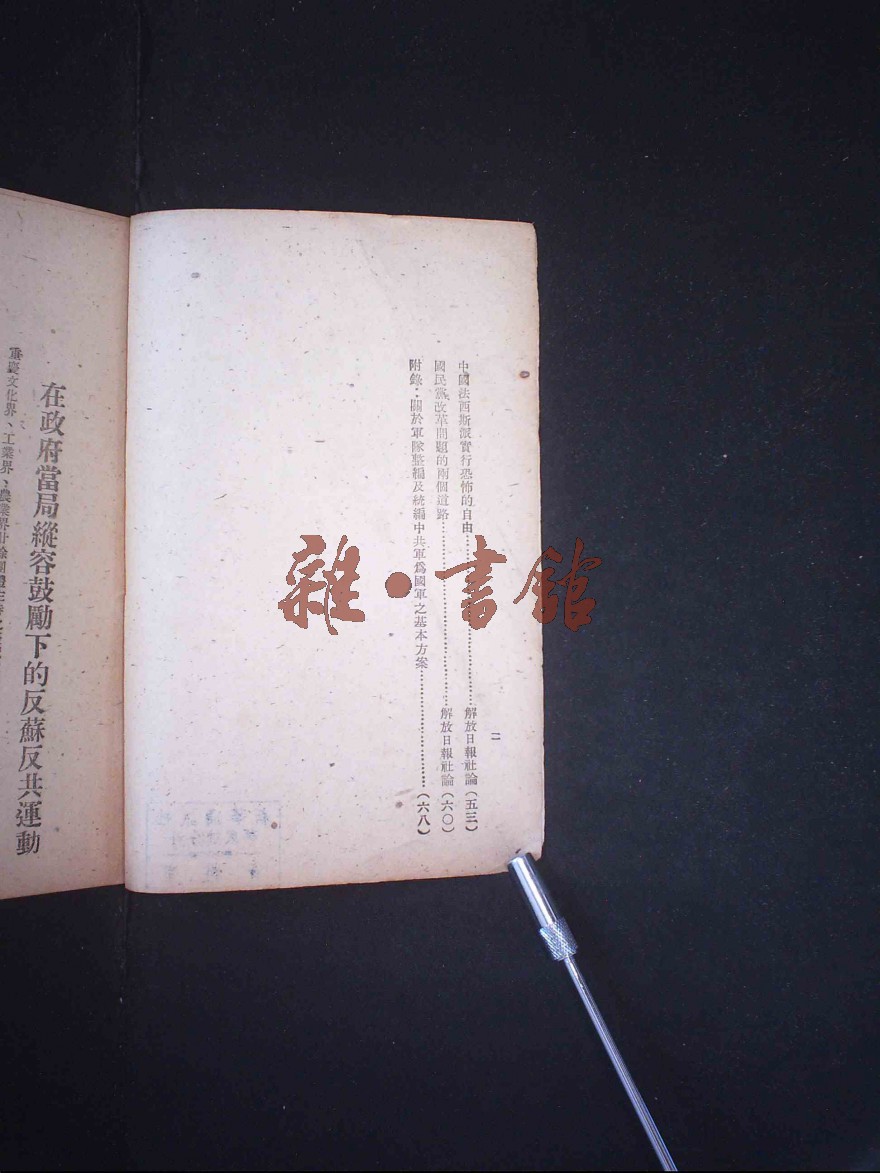 二
中國法西斯派實行恐怖的自由……解放日報社論(五三)
國民黨改革問題的兩個道路……解放日報社論(六〇)
附錄：關於軍隊整編及統編中共軍爲國軍之基本方案……(六八)
在政府當局縱容鼓勵下的反蘇反共運動
重慶文化界、工業界、農業界
雜·書館